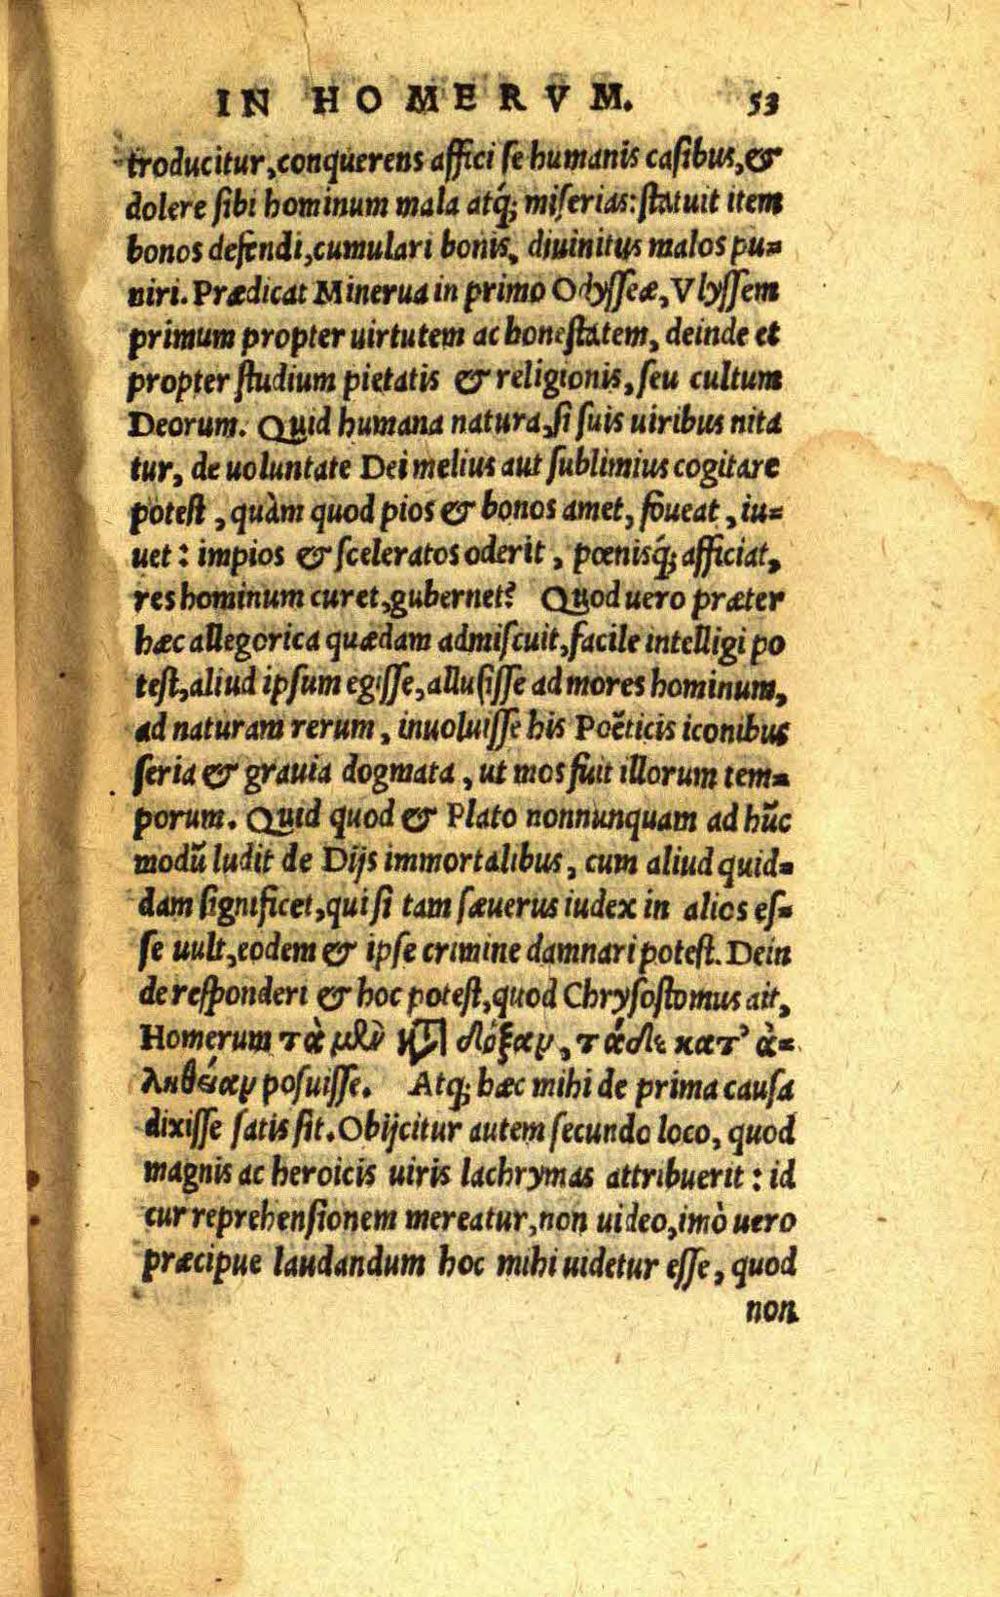 IN HOMERVM. 53
troducitur, conquerens affici se humanis casibus, &
dolere sibi hominum mala atq́; miserias: statuit item
bonos defendi, cumulari bonis, diuinitus malos pu=
niri. Prædicat Minerua in primo Odysseæ, Vlyssem
primum propter uirtutem ac honestatem, deinde et
propter studium pietatis & religionis, seu cultum
Deorum. Quid humana natura, si suis uiribus nita
tur, de uoluntate Dei melius aut sublimius cogitare
potest, quàm quod pios & bonos amet, foueat, iu=
uet: impios & sceleratos oderit, pœnisq́; afficiat,
res hominum curet, gubernet? Quod uero præter
hæc allegorica quædam admiscuit, facile intelligi po
test, aliud ipsum egisse, allusisse ad mores hominum,
ad naturam rerum, inuoluisse his Poëticis iconibus
seria & grauia dogmata, ut mos fuit illorum tem=
porum. Quid quod & Plato nonnunquam ad hũc
modũ ludit de Dijs immortalibus, cum aliud quid=
dam significet, qui si tam sæuerus iudex in alios es=
se uult, eodem & ipse crimine damnari potest. Dein
de responderi & hoc potest, quod Chrysostomus ait,
Homerum τὰ μὲν κτ̀ δόξαν, τάδε κατ' ἀ=
λήθειαν posuisse. Atq; hæc mihi de prima causa
dixisse satis sit. Obijcitur autem secundo loco, quod
magnis ac heroicis uiris lachrymas attribuerit: id
cur reprehensionem mereatur, non uideo, imò uero
præcipue laudandum hoc mihi uidetur esse, quod
non